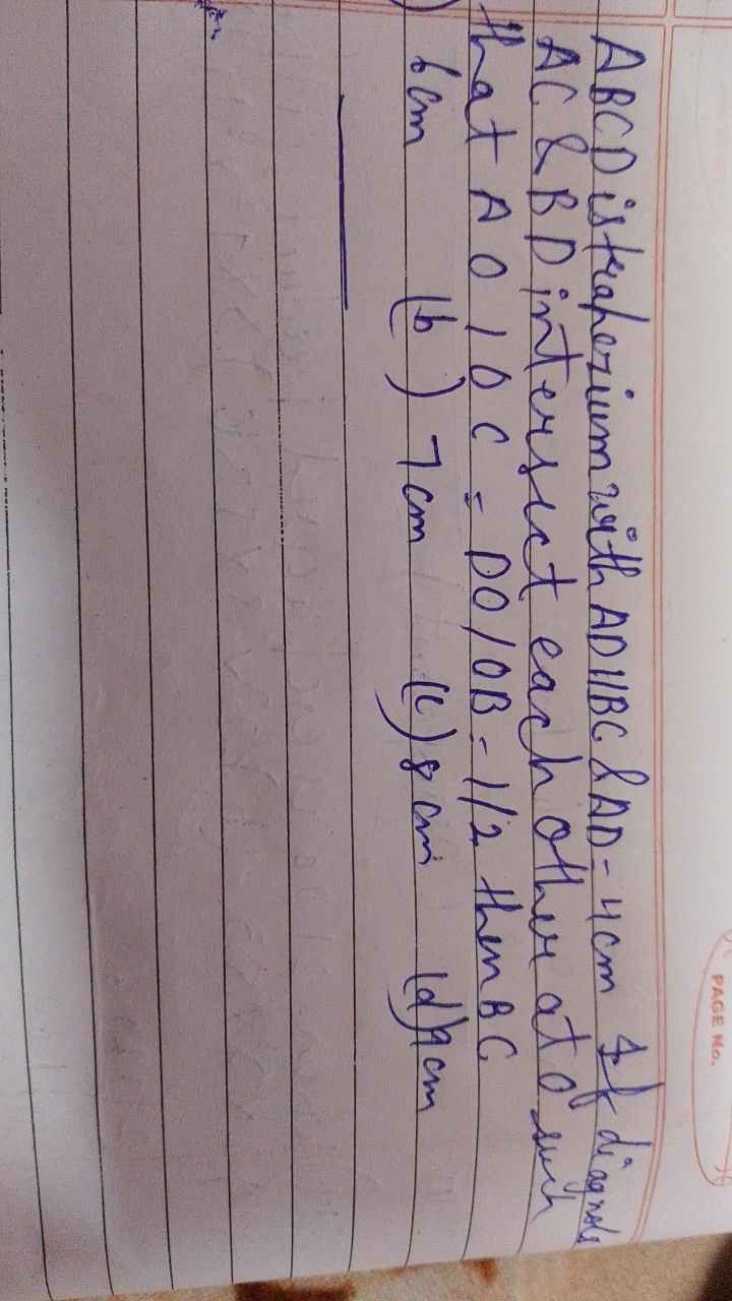 PAGE No.
ABCD is trapezium with AD||BC & AD = 4cm If diagnols
AC & BD intersect each other at O such
that AO/OC = DO/OB = 1/2 then BC
) 6cm (b) 7cm (c) 8cm (d) 9cm